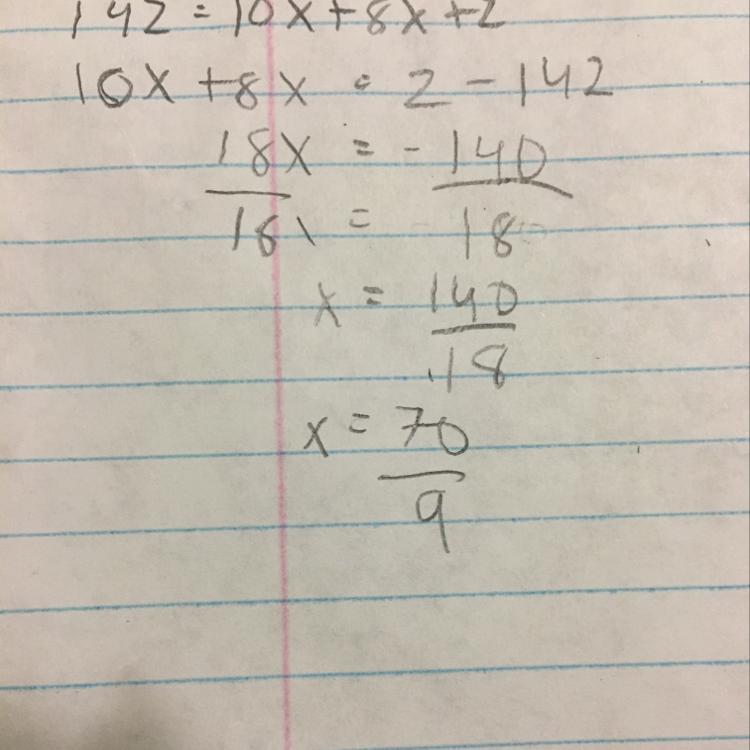 142 = 10x + 8x + 2
10x + 8x = 2 - 142
18x = - 140
18x = 18
x = 140
18
x = 70
9